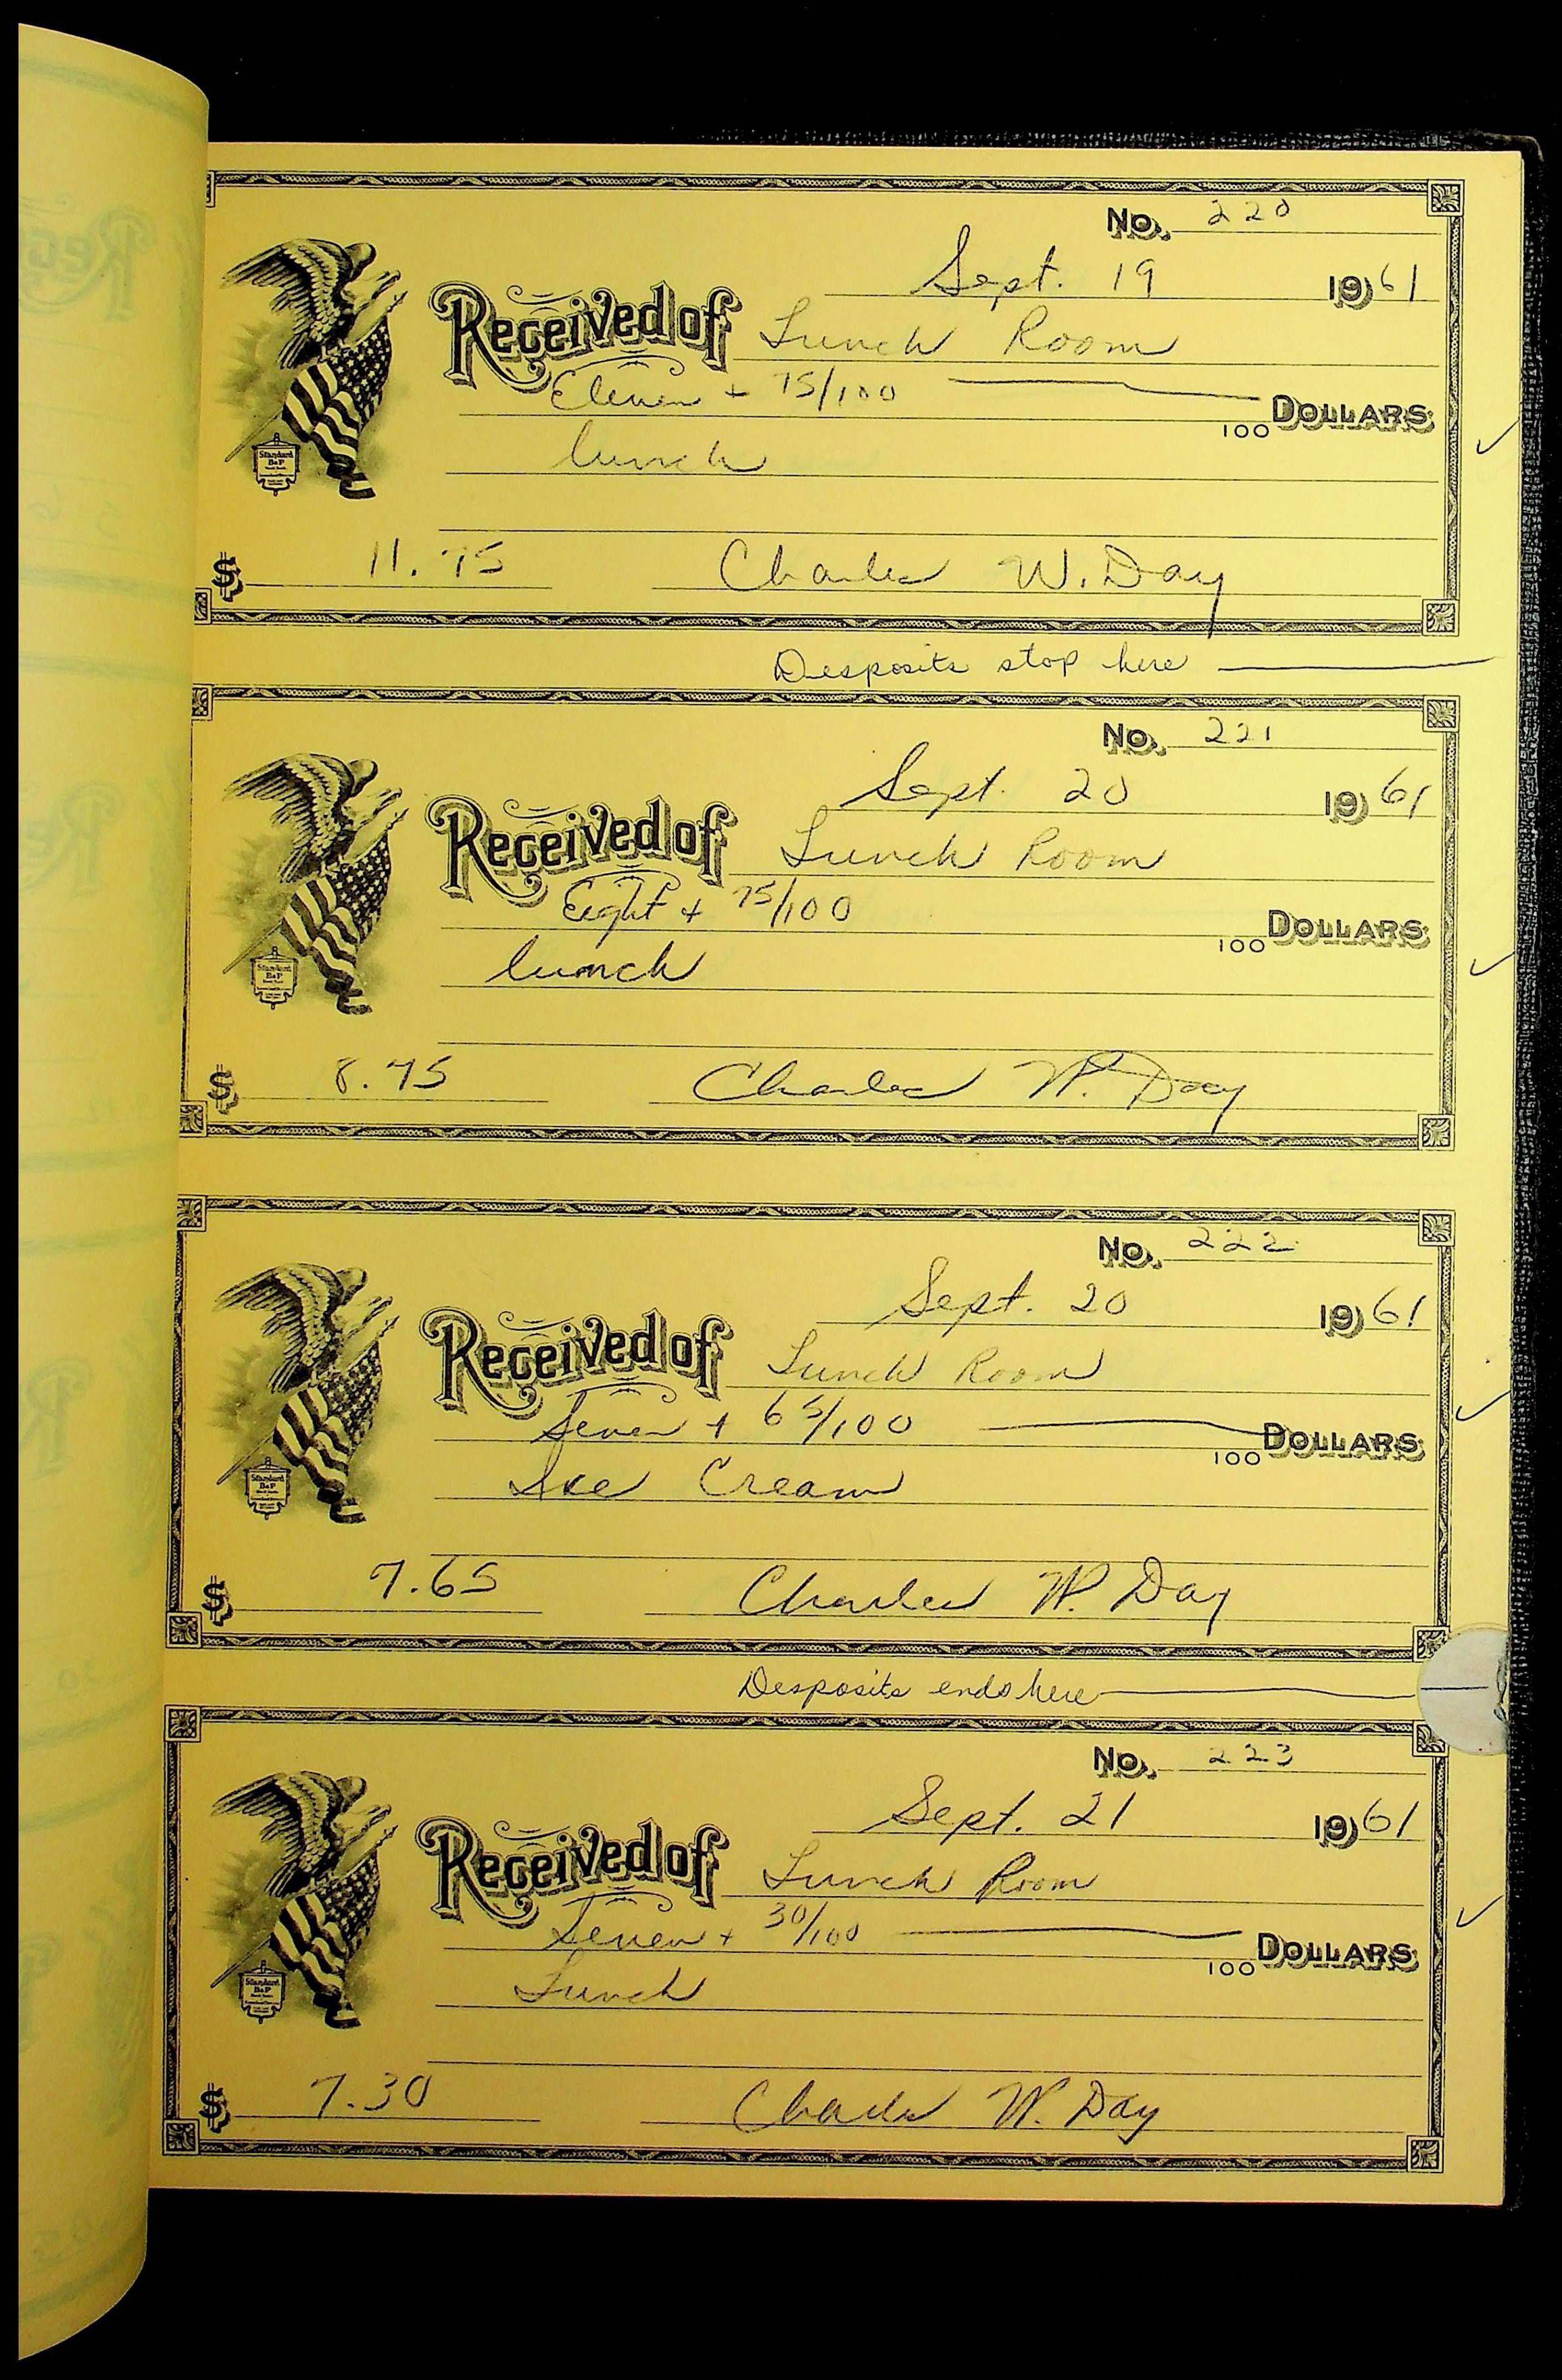 No. 220
Sept. 19 1961
Received of Lunch Room
Eleven + 75/100 100 DOLLARS
lunch
Standard
B&P
$ 11.75 Charles W. Day
Desposits stop here
No. 221
Sept. 20 1961
Received of Lunch Room
Eight + 75/100 100 DOLLARS
lunch
Standard
B&P
$ 8.75 Charles W. Day
No. 222
Sept. 20 1961
Received of Lunch Room
Seven + 65/100 100 DOLLARS
Ice Cream
Standard
B&P
$ 7.65 Charles W. Day
Desposits ends here
No. 223
Sept. 21 1961
Received of Lunch Room
Seven + 30/100 100 DOLLARS
Lunch
Standard
B&P
$ 7.30 Charles W. Day